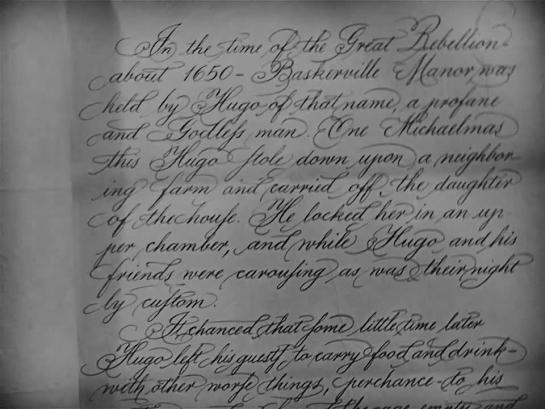 In the time of the Great Rebellion
about 1650 - Baskerville Manor was
held by Hugo of that name, a profane
and Godleſs man. One Michaelmas
this Hugo ſtole down upon a neighbor
ing farm and carried off the daughter
of the houſe. He locked her in an up
per chamber, and while Hugo and his
friends were carouſing as was their night
ly cuſtom.
It chanced that ſome little time later
Hugo left his gueſts to carry food and drink-
with other worſe things, perchance - to his
the cage empty and